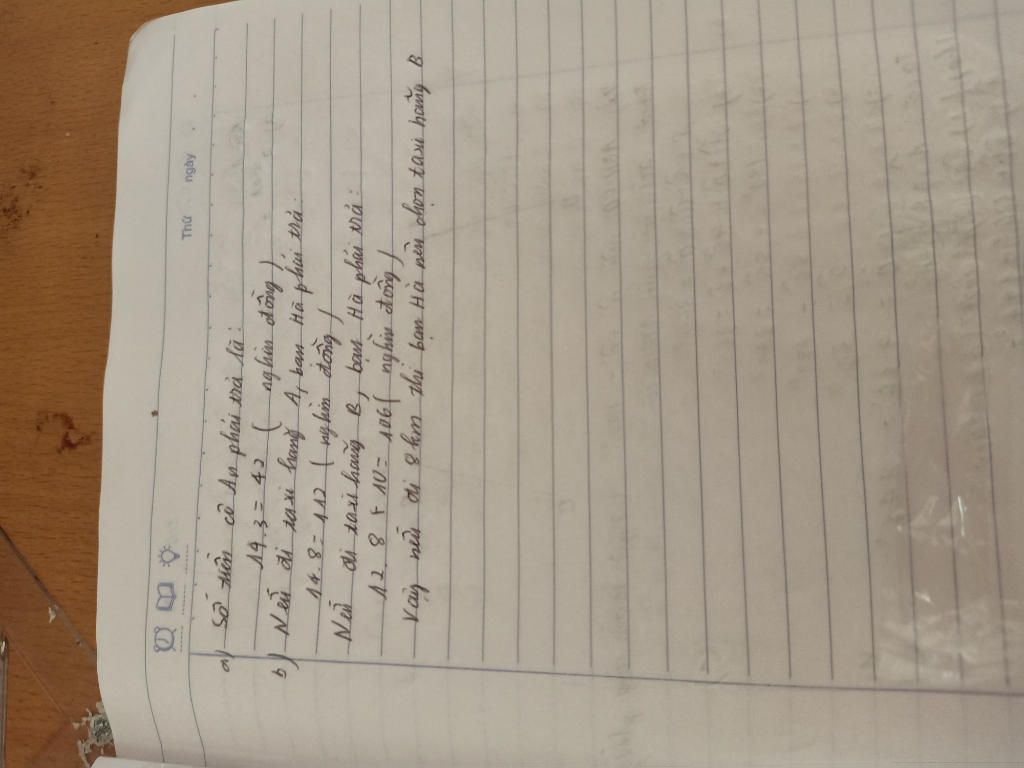 Thứ ngày
a) Số tiền cô An phải trả là:
14.3 = 42 ( nghìn đồng)
b) Nếu đi taxi hãng A, bạn Hà phải trả:
14.8 = 112 ( nghìn đồng)
Nếu đi taxi hãng B, bạn Hà phải trả:
12.8 + 10 = 106 ( nghìn đồng)
Vậy nếu đi 8 km thì bạn Hà nên chọn taxi hãng B